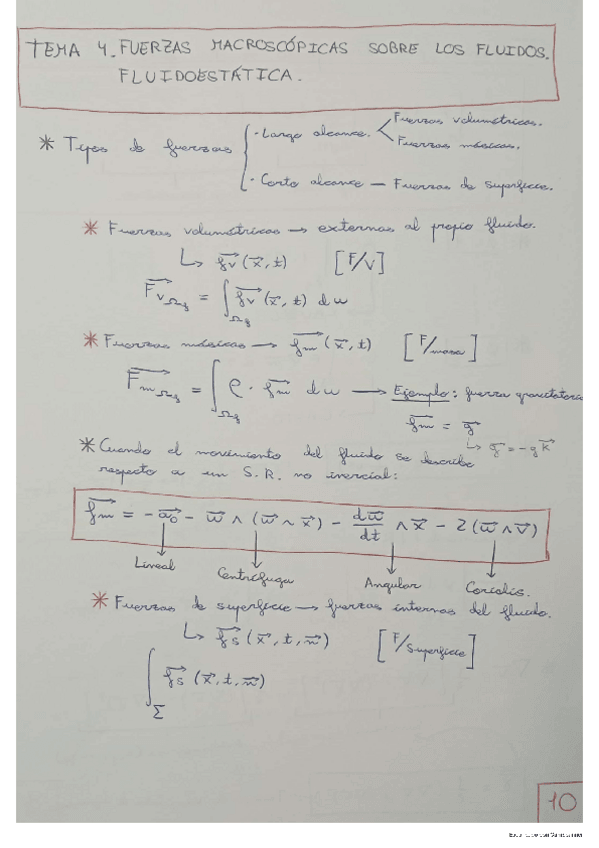 TEMA 4. FUERZAS MACROSCÓPICAS SOBRE LOS FLUIDOS.
FLUIDOESTÁTICA.
* Tipos de fuerzas { · Largo alcance. < Fuerzas volumétricas.
Fuerzas másicas.
· Corto alcance — Fuerzas de superficie.
* Fuerzas volumétricas → externas al propio fluido.
↳ \vec{f_v} (\vec{x}, t) [F/V]
\vec{F_v}_{Ω_f} = ∫_{Ω_f} \vec{f_v} (\vec{x}, t) dw
* Fuerzas másicas → \vec{f_m} (\vec{x}, t) [F/masa]
\vec{F_m}_{Ω_f} = ∫_{Ω_f} ρ · \vec{f_m} dw → Ejemplo: fuerza gravitatoria
\vec{f_m} = \vec{g}
↳ \vec{g} = -g\vec{k}
* Cuando el movimiento del fluido se describe
respecto a un S.R. no inercial:
\vec{f_m} = -\vec{a_0} - \vec{w} ∧ (\vec{w} ∧ \vec{x}) - \frac{d\vec{w}}{dt} ∧ \vec{x} - 2(\vec{w} ∧ \vec{v})
Lineal Centrífuga Angular Coriolis.
* Fuerzas de superficie → fuerzas internas del fluido.
↳ \vec{f_s} (\vec{x}, t, \vec{n}) [F/superficie]
∫_Σ \vec{f_s} (\vec{x}, t, \vec{n})
10